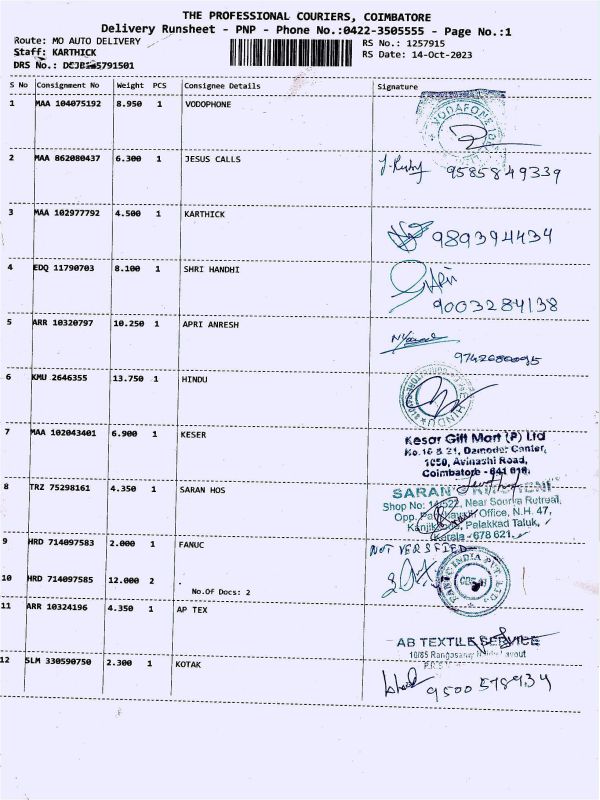 THE PROFESSIONAL COURIERS, COIMBATORE
Delivery Runsheet - PNP - Phone No.:0422-3505555 - Page No.:1
Route: MO AUTO DELIVERY RS No.: 1257915
Staff: KARTHICK RS Date: 14-Oct-2023
DRS No.: 5791501
S No Consignment No Weight PCS Consignee Details Signature
1 MAA 104075192 8.950 1 VODOPHONE
VODAFONE
2 MAA 862080437 6.300 1 JESUS CALLS
9585849339
3 MAA 102977792 4.500 1 KARTHICK
989394434
4 EDQ 11790703 8.100 1 SHRI HANDHI
9003284138
5 ARR 10320797 10.250 1 APRI ANRESH
6 KMU 2646355 13.750 1 HINDU
7 MAA 102043401 6.900 1 KESER
Kesar Gift Mart (P) Ltd
No. 16 & 21, Damodar Center,
1050, Avinashi Road,
Coimbatore - 641 018.
8 TRZ 75298161 4.350 1 SARAN HOS
SARAN
Shop No: Near Sourya Retreat,
Opp. Office, N.H. 47,
Pelakkad Taluk,
Kerala - 678 621.
9 HRD 714097583 2.000 1 FANUC
NOT VERSFIED
FANUC INDIA PVT. LTD
10 HRD 714097585 12.000 2
No.Of Docs: 2
11 ARR 10324196 4.350 1 AP TEX
AB TEXTILE SERVICE
10/85 Layout
12 SLM 330590750 2.300 1 KOTAK
9500578934